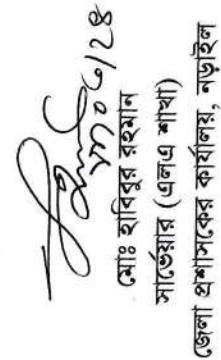 মোঃ হাবিবুর রহমান
সার্ভেয়ার (এলএ শাখা)
জেলা প্রশাসকের কার্যালয়, নড়াইল